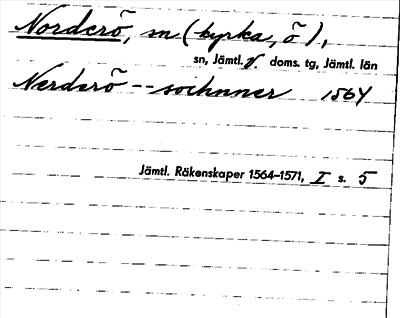 Norderö, sn (kyrka, ö),
sn, Jämtl. V. doms. tg, Jämtl. län
Nerderö -- sochnner 1564
Jämtl. Räkenskaper 1564–1571, I s. 5